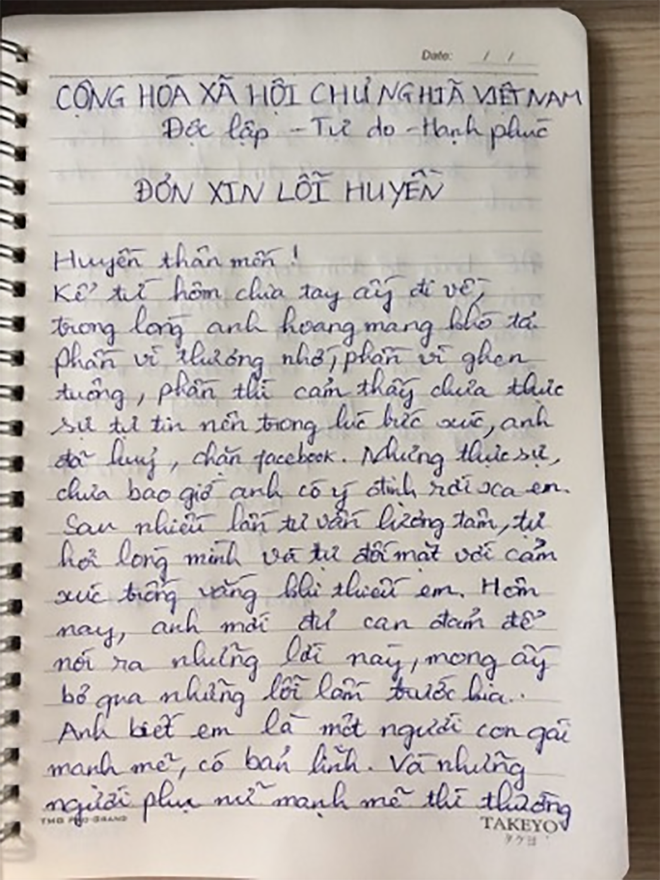 Date: / /
CỘNG HÒA XÃ HỘI CHỦ NGHĨA VIỆT NAM
Độc lập - Tự do - Hạnh phúc
ĐƠN XIN LỖI HUYỀN
Huyền thân mến!
Kể từ hôm chia tay ấy đi về,
trong lòng anh hoang mang khó tả.
Phần vì thương nhớ, phần vì ghen
tuông, phần thì cảm thấy chưa thực
sự tự tin nên trong lúc bức xúc, anh
đã huỷ, chặn facebook. Nhưng thực sự,
chưa bao giờ anh có ý định rời xa em.
Sau nhiều lần tự vấn lương tâm, tự
hỏi lòng mình và tự đối mặt với cảm
xúc trống vắng khi thiếu em. Hôm
nay, anh mới đủ can đảm để
nói ra những lời này, mong ấy
bỏ qua những lỗi lầm trước kia..
Anh biết em là một người con gái
mạnh mẽ, có bản lĩnh. Và những
người phụ nữ mạnh mẽ thì thường
TAKEYO